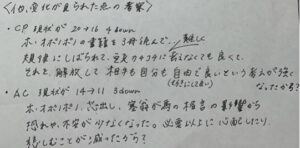 〈他、変化が見られた点の考察〉
・CP 現状が 20→16 4down
ホ・オポノポノの書籍を3冊読んで、難しく
規律にしばられて、
考えなくても良く、
それを、解放して 相手も自分も 自由で良いという考えが強く
なったから?
・AC 現状が 14→11 3down
ホ・オポノポノ、
の影響から
恐れや、不安が少なくなった。必要以上に心配したり
悲しむことが減ったから?